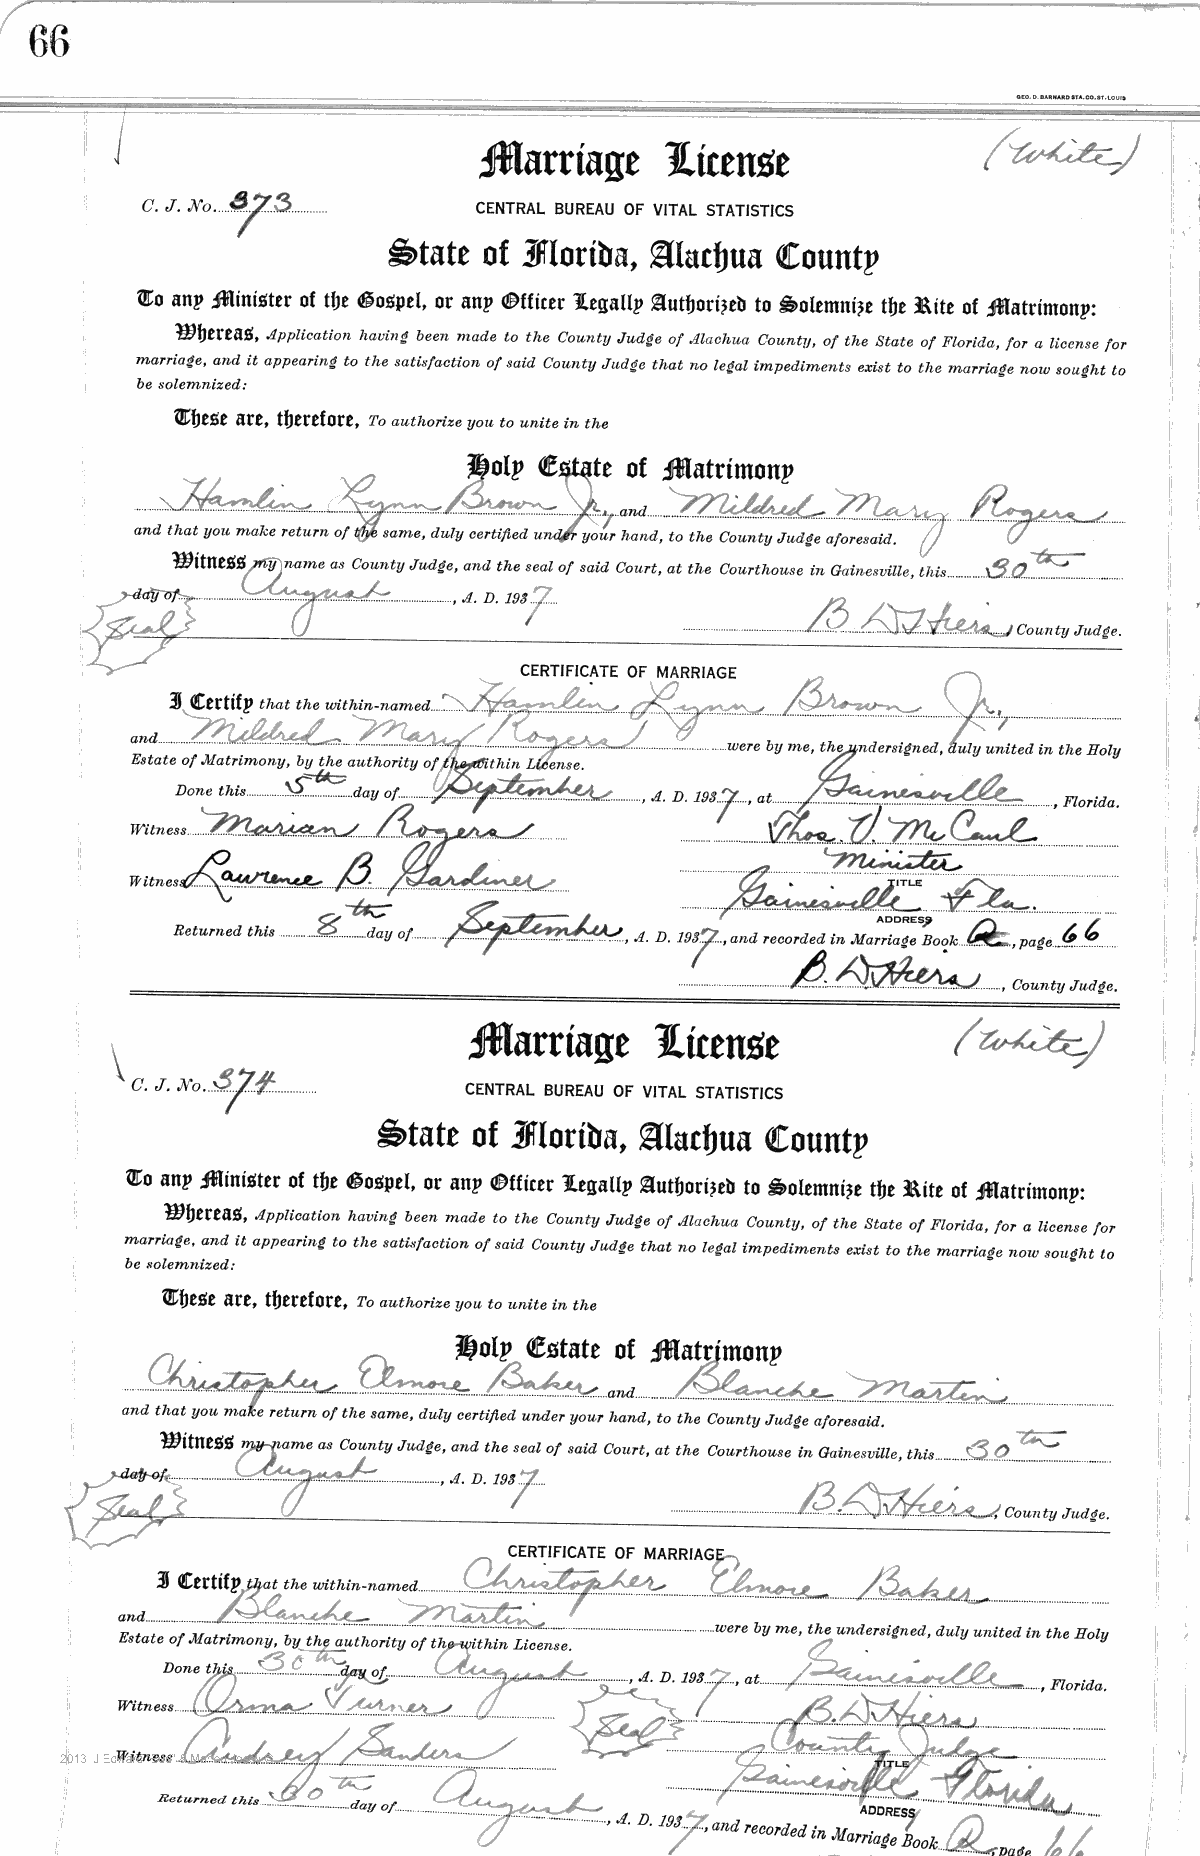 66
GEO. D. BARNARD STA. CO. ST. LOUIS
Marriage License
(White)
C. J. No. 373
CENTRAL BUREAU OF VITAL STATISTICS
State of Florida, Alachua County
To any Minister of the Gospel, or any Officer Legally Authorized to Solemnize the Rite of Matrimony:
Whereas, Application having been made to the County Judge of Alachua County, of the State of Florida, for a license for
marriage, and it appearing to the satisfaction of said County Judge that no legal impediments exist to the marriage now sought to
be solemnized:
These are, therefore, To authorize you to unite in the
Holy Estate of Matrimony
Hamlin Lynn Brown Jr., and Mildred Mary Rogers
and that you make return of the same, duly certified under your hand, to the County Judge aforesaid.
Witness my name as County Judge, and the seal of said Court, at the Courthouse in Gainesville, this 30th
day of August, A. D. 1937
Seal
B D Hiers, County Judge.
CERTIFICATE OF MARRIAGE
I Certify that the within-named Hamlin Lynn Brown Jr.,
and Mildred Mary Rogers were by me, the undersigned, duly united in the Holy
Estate of Matrimony, by the authority of the within License.
Done this 5th day of September, A. D. 1937, at Gainesville, Florida.
Witness Marian Rogers Thos. V. McCaul
Minister
Witness Lawrence B. Gardiner
TITLE
Gainesville Fla.
ADDRESS
Returned this 8th day of September, A. D. 1937, and recorded in Marriage Book Q, page 66
B. D Hiers, County Judge.
Marriage License
(White)
C. J. No. 374
CENTRAL BUREAU OF VITAL STATISTICS
State of Florida, Alachua County
To any Minister of the Gospel, or any Officer Legally Authorized to Solemnize the Rite of Matrimony:
Whereas, Application having been made to the County Judge of Alachua County, of the State of Florida, for a license for
marriage, and it appearing to the satisfaction of said County Judge that no legal impediments exist to the marriage now sought to
be solemnized:
These are, therefore, To authorize you to unite in the
Holy Estate of Matrimony
Christopher Elmore Baker and Blanche Martin
and that you make return of the same, duly certified under your hand, to the County Judge aforesaid.
Witness my name as County Judge, and the seal of said Court, at the Courthouse in Gainesville, this 30th
day of August, A. D. 1937
Seal
B. D Hiers, County Judge.
CERTIFICATE OF MARRIAGE
I Certify that the within-named Christopher Elmore Baker
and Blanche Martin were by me, the undersigned, duly united in the Holy
Estate of Matrimony, by the authority of the within License.
Done this 30th day of August, A. D. 1937, at Gainesville, Florida.
Witness Orma Turner Seal B. D Hiers
County Judge
2013 J
Witness Audrey Sanders
TITLE
Gainesville Florida
ADDRESS
Returned this 30th day of August, A. D. 1937, and recorded in Marriage Book Q, page 66